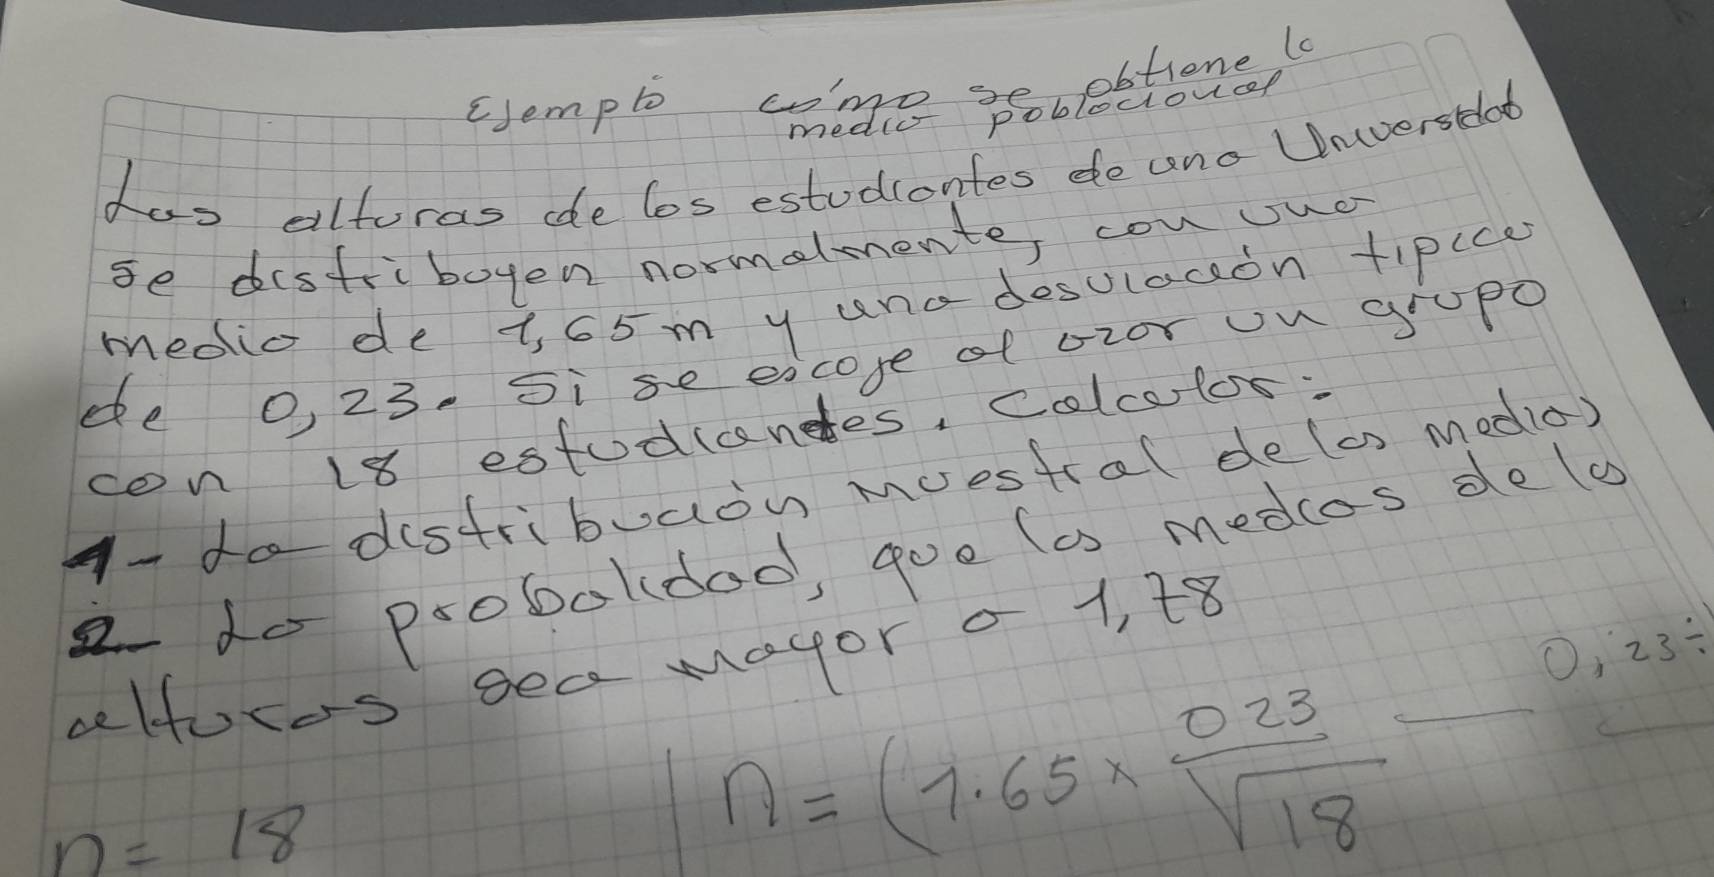 Ejemplo cómo se obtiene la
media poblacional
Las alturas de los estudiantes de una Universidad
se distribuyen normalmente, con una
media de 1,65 m y una desviación típica
de 0,23. Si se escoje al azar un grupo
con 18 estudiantes. Calcular:
1- La distribución muestral de las medias
2- La probalidad, que las medias de las
alturas sea mayor a 1,78
n = 18
n = (1.65 x 023 / √18 — 0,23 ÷